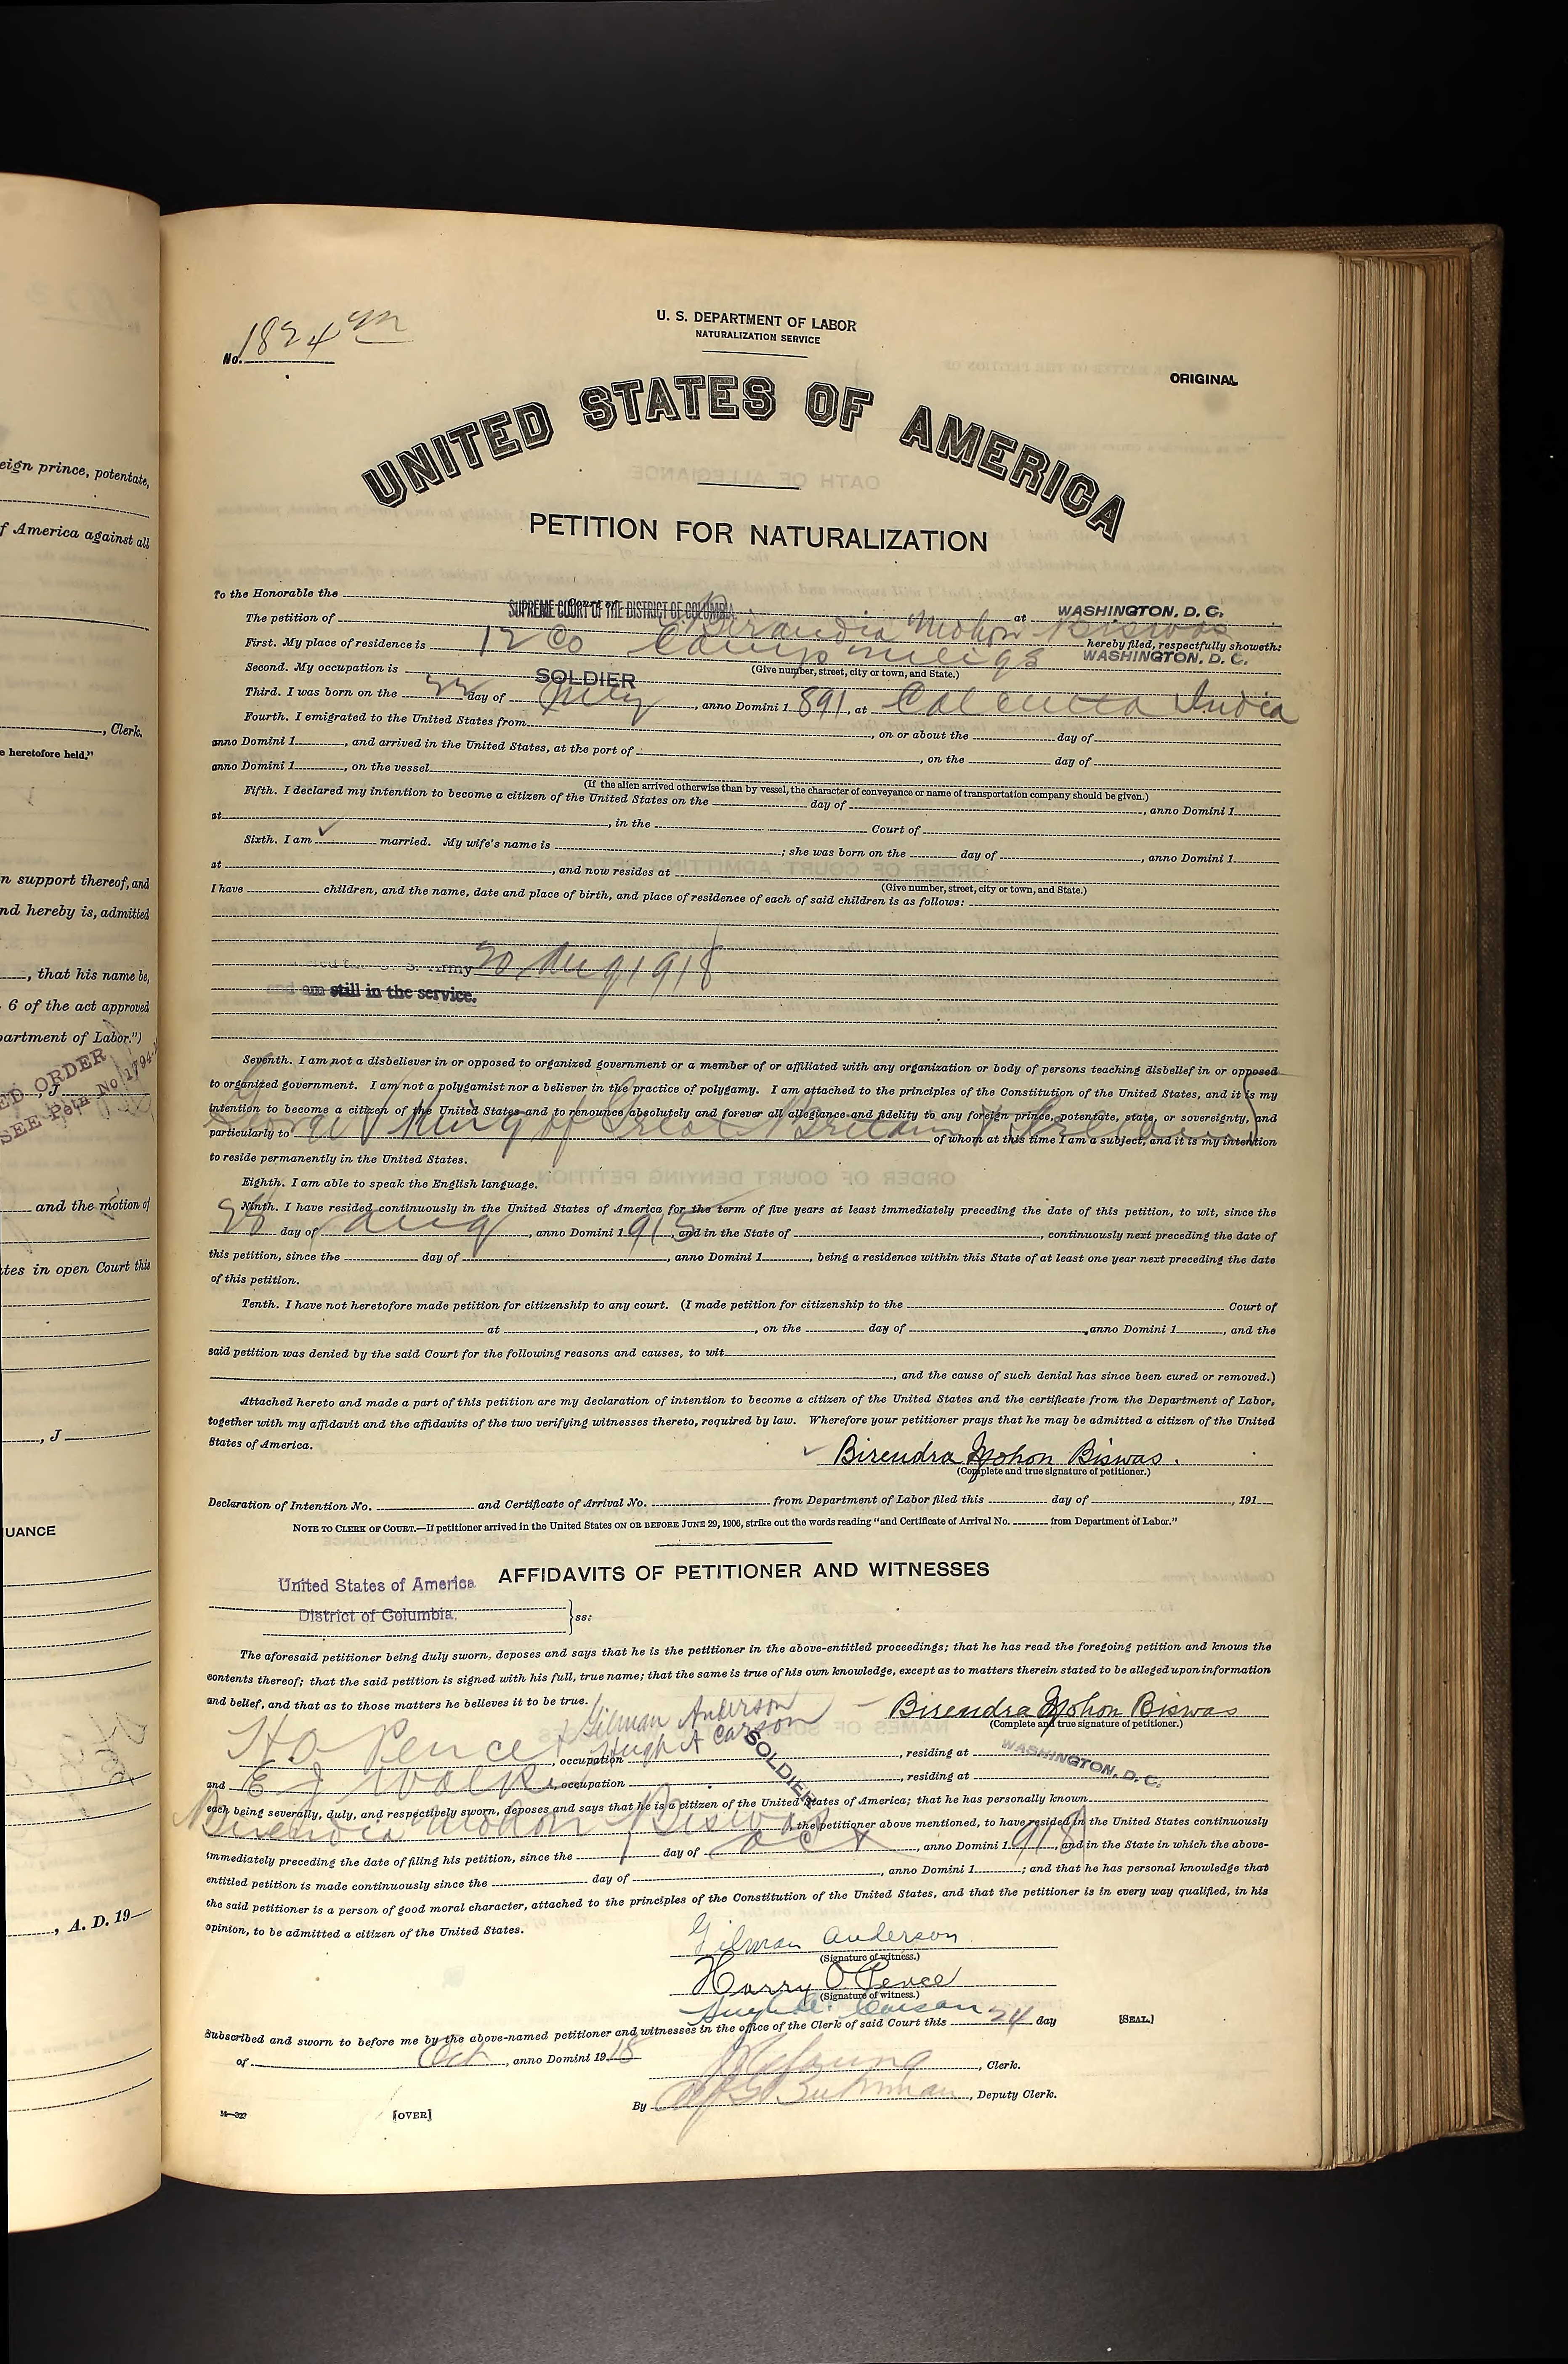 eign prince, potentate,
f America against all
, Clerk.
e heretofore held."
n support thereof, and
nd hereby is, admitted
, that his name be,
6 of the act approved
partment of Labor.")
ED ORDER
, J
SEE Petn No 1794-
and the motion of
tes in open Court this
, J
UANCE
, A. D. 19
No. 1824
U. S. DEPARTMENT OF LABOR
NATURALIZATION SERVICE
ORIGINAL
UNITED STATES OF AMERICA
PETITION FOR NATURALIZATION
To the Honorable the SUPREME COURT OF THE DISTRICT OF COLUMBIA at WASHINGTON, D. C.
The petition of Birandia Mohon Biswas hereby filed, respectfully showeth:
First. My place of residence is 12 Co Camp Meigs WASHINGTON, D. C.
(Give number, street, city or town, and State.)
Second. My occupation is SOLDIER
Third. I was born on the 22 day of July, anno Domini 1 891, at Calcutta India
Fourth. I emigrated to the United States from , on or about the day of
anno Domini 1 , and arrived in the United States, at the port of , on the day of
anno Domini 1 , on the vessel
(If the alien arrived otherwise than by vessel, the character of conveyance or name of transportation company should be given.)
Fifth. I declared my intention to become a citizen of the United States on the day of , anno Domini 1
at , in the Court of
Sixth. I am married. My wife's name is ; she was born on the day of , anno Domini 1
at , and now resides at
(Give number, street, city or town, and State.)
I have children, and the name, date and place of birth, and place of residence of each of said children is as follows:
Army 20 Aug 1918
and am still in the service.
Seventh. I am not a disbeliever in or opposed to organized government or a member of or affiliated with any organization or body of persons teaching disbelief in or opposed
to organized government. I am not a polygamist nor a believer in the practice of polygamy. I am attached to the principles of the Constitution of the United States, and it is my
intention to become a citizen of the United States and to renounce absolutely and forever all allegiance and fidelity to any foreign prince, potentate, state, or sovereignty, and
particularly to George V King of Great Britain & Ireland of whom at this time I am a subject, and it is my intention
to reside permanently in the United States.
Eighth. I am able to speak the English language.
Ninth. I have resided continuously in the United States of America for the term of five years at least immediately preceding the date of this petition, to wit, since the
day of Aug, anno Domini 1 915, and in the State of , continuously next preceding the date of
this petition, since the day of , anno Domini 1 , being a residence within this State of at least one year next preceding the date
of this petition.
Tenth. I have not heretofore made petition for citizenship to any court. (I made petition for citizenship to the Court of
at , on the day of , anno Domini 1 , and the
said petition was denied by the said Court for the following reasons and causes, to wit
, and the cause of such denial has since been cured or removed.)
Attached hereto and made a part of this petition are my declaration of intention to become a citizen of the United States and the certificate from the Department of Labor,
together with my affidavit and the affidavits of the two verifying witnesses thereto, required by law. Wherefore your petitioner prays that he may be admitted a citizen of the United
States of America.
Birendra Mohon Biswas.
(Complete and true signature of petitioner.)
Declaration of Intention No. and Certificate of Arrival No. from Department of Labor filed this day of , 191
NOTE TO CLERK OF COURT.—If petitioner arrived in the United States ON OR BEFORE JUNE 29, 1906, strike out the words reading "and Certificate of Arrival No. from Department of Labor."
AFFIDAVITS OF PETITIONER AND WITNESSES
United States of America
District of Columbia. ss:
The aforesaid petitioner being duly sworn, deposes and says that he is the petitioner in the above-entitled proceedings; that he has read the foregoing petition and knows the
contents thereof; that the said petition is signed with his full, true name; that the same is true of his own knowledge, except as to matters therein stated to be alleged upon information
and belief, and that as to those matters he believes it to be true.
Birendra Mohon Biswas
(Complete and true signature of petitioner.)
Gilman Anderson
Hugh A Carson
H O Pence, occupation SOLDIER, residing at WASHINGTON, D. C.
and E J Walk, occupation , residing at
each being severally, duly, and respectively sworn, deposes and says that he is a citizen of the United States of America; that he has personally known
Birendia Mohon Biswas, the petitioner above mentioned, to have resided in the United States continuously
immediately preceding the date of filing his petition, since the day of Oct, anno Domini 1 918, and in the State in which the above-
entitled petition is made continuously since the day of , anno Domini 1 ; and that he has personal knowledge that
the said petitioner is a person of good moral character, attached to the principles of the Constitution of the United States, and that the petitioner is in every way qualified, in his
opinion, to be admitted a citizen of the United States.
Gilman Anderson
(Signature of witness.)
Harry O Pence
(Signature of witness.)
Hugh A. Carson
Subscribed and sworn to before me by the above-named petitioner and witnesses in the office of the Clerk of said Court this 24 day [SEAL.]
of Oct, anno Domini 19 18
, Clerk.
By , Deputy Clerk.
[OVER]